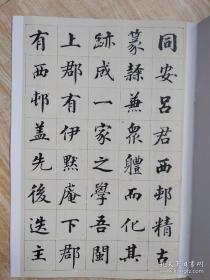 同安呂君西邨精古
篆隸兼衆體而化其
跡成一家之學吾閩
上郡有伊默庵下郡
有西邨蓋先後迭主